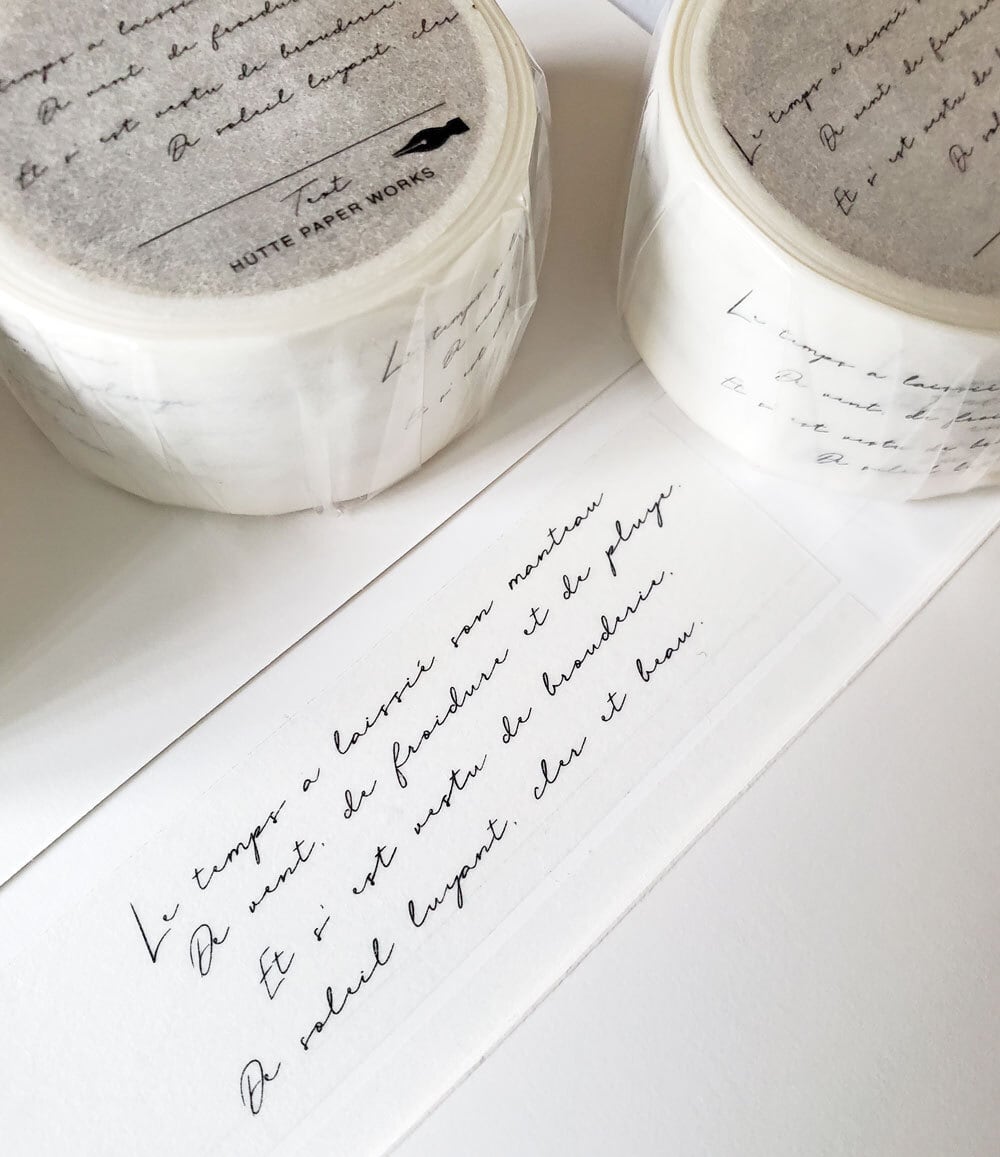 temps a laissié
De vent, de froidu
Et s' est vestu de brouderie,
De soleil luyant, cler
Text
HÜTTE PAPER WORKS
Le temps a laissié
De vent, de froidure
Et s' est vestu de
De sol
Le temps
De vent
Et s'
Le temps a laissié
De vent, de froi
Et s' est vestu de br
De soleil l
Le temps a laissié son manteau
De vent, de froidure et de pluye,
Et s' est vestu de brouderie,
De soleil luyant, cler et beau.